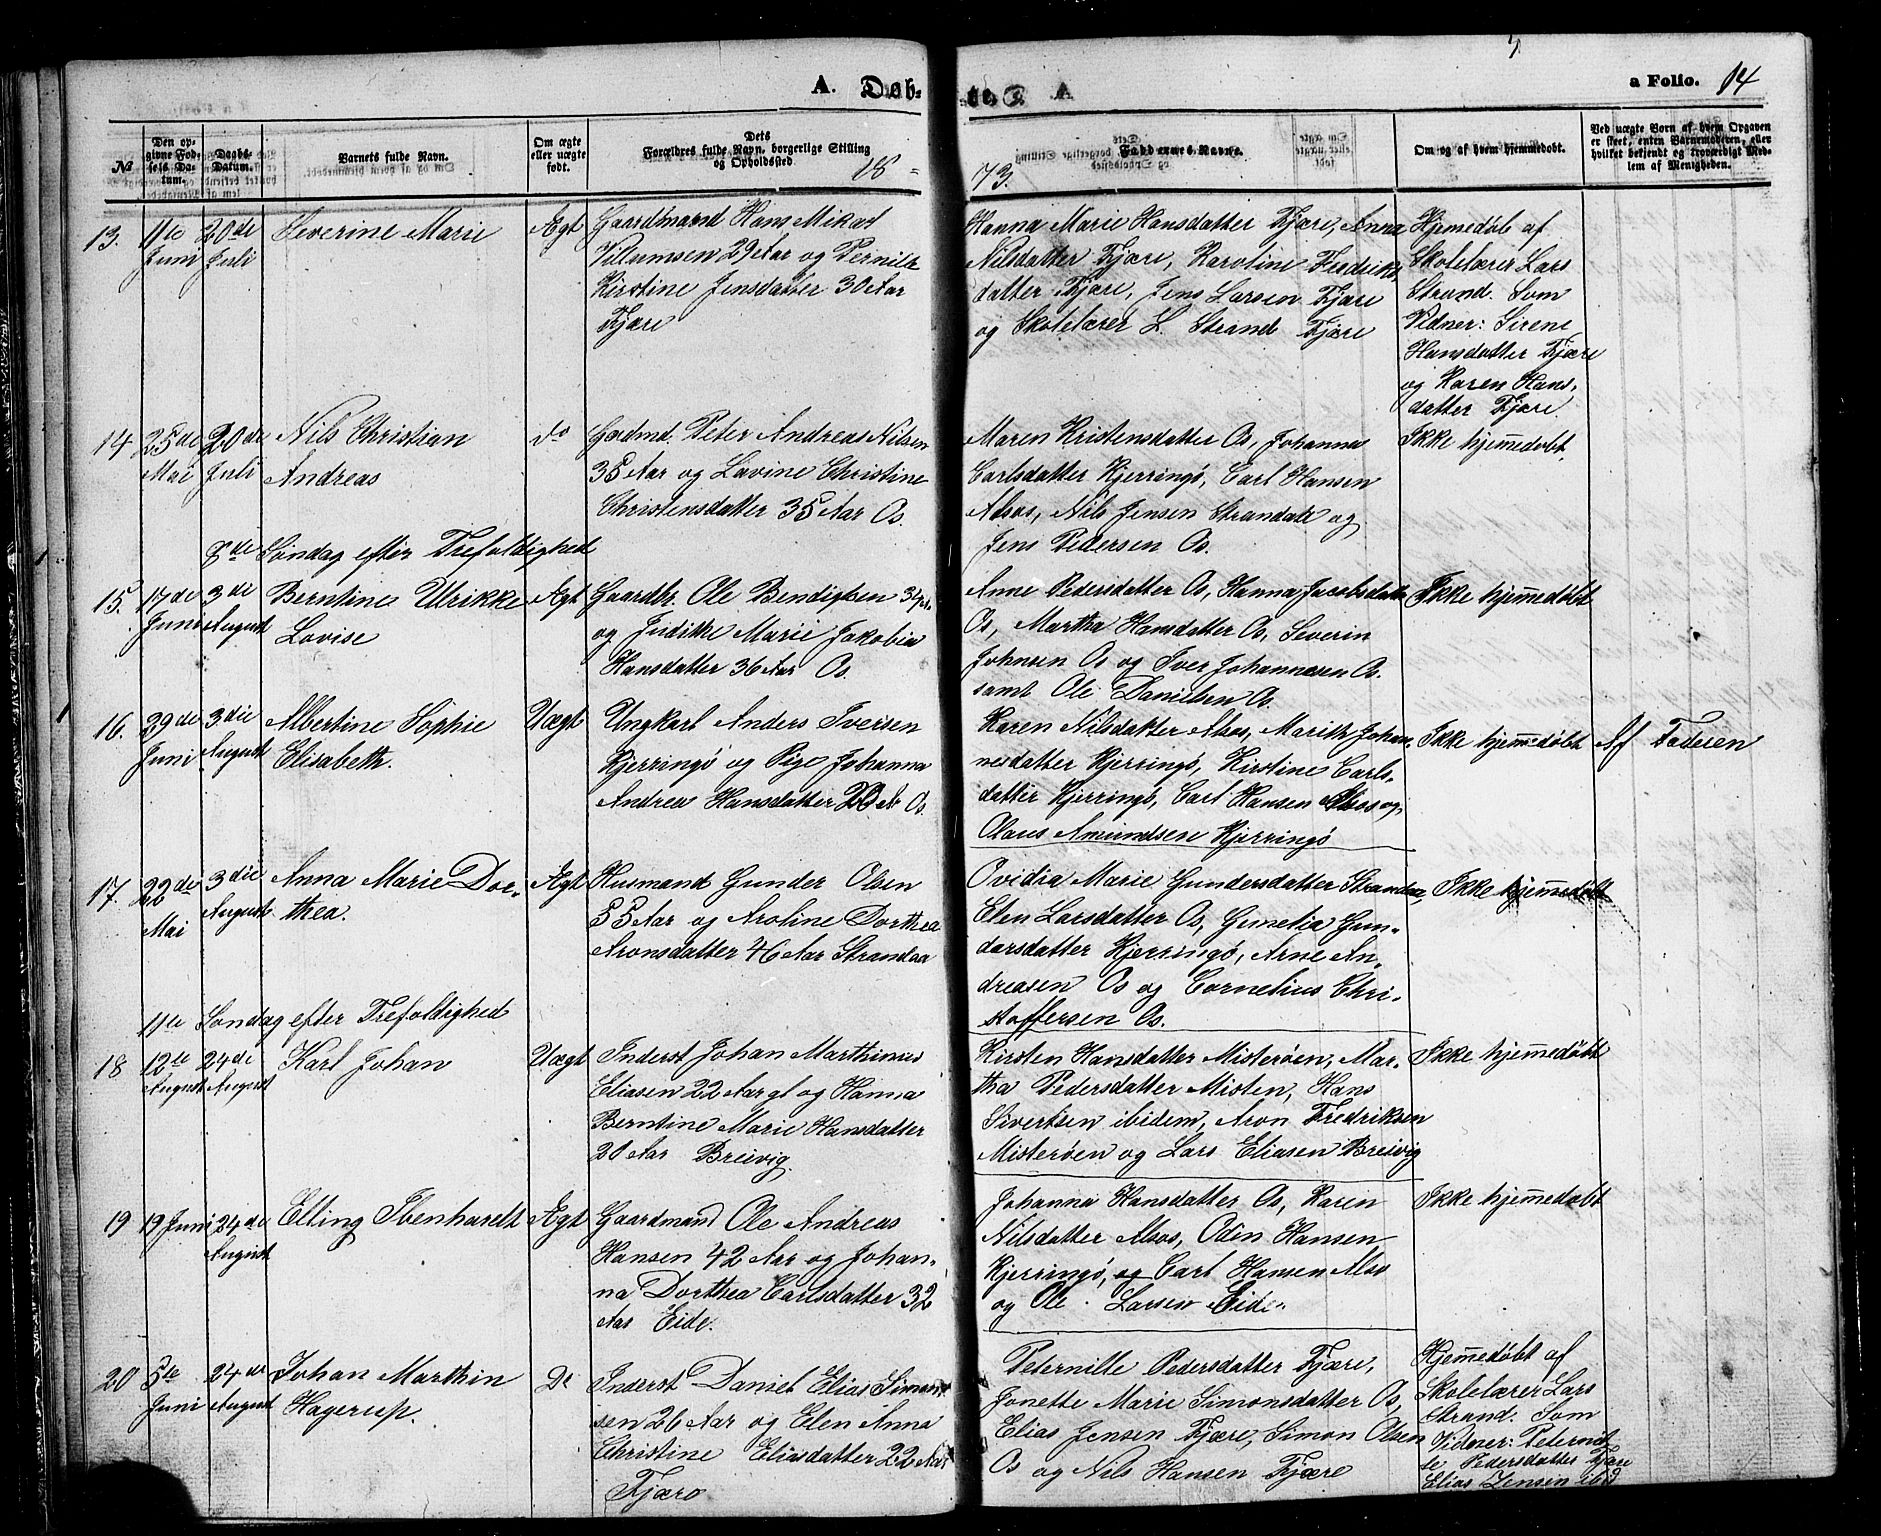 A. Døb-
te. a Folio. 14
№
Den op-
givne Fød-
sels Da-
tum.
Daabs-
Datum.
Barnets fulde Navn.
Om ægte
eller uægte
født.
Dets
Forældres fulde Navn, borgerlige Stilling
og Opholdssted.
18 =
73.
Faddernes Navne.
Om og af hvem hjemmedøbt.
Ved uægte Børn af hvem Opgaven
er skeet, enten Barnemoderen, eller
hvilket bekjendt og troværdigt Med-
lem af Menigheden.
13. 11te Juni 20de Juli Severine Marie Ægt
Gaardmand Hans Mikal
Villumsen 29 Aar og Pernille
Kirstine Jensdatter 30 Aar
Fjære
Hanna Marie Hansdatter Fjære, Anna
Nilsdatter Fjære, Karoline Fredriks
datter Fjære, Jens Larsen Fjære
og Skolelærer L. Strand Fjære
Hjemedøb af
Skolelærer Lars
Strand. Som
Vidner: Sirene
Hansdatter Fjære
og Karen Hans-
datter Fjære
14 25de Mai 20de Juli Nils Christian
Andreas
do
Gardmd. Peter Andreas Nilsen
35 Aar og Lavine Christine
Christensdatter 35 Aar Os.
Maren Kristensdatter Os, Johanna
Carlsdatter Kjerringø, Carl Hansen
Alsos, Nils Jensen Strandaa og
Jens Pedersen Os.
Ikke hjemedøbt
8de Søndag efter Trefoldighed
15. 17de Juni 3die August Berntine Ulrikke
Lovise
Ægt
Gaardbr. Ole Bendigtsen 34 Ar
og Judike Marie Jakobia
Hansdatter 36 Aar Os.
Anne Pedersdatter Os, Hanna Jacobsdatter
Os, Martha Hansdatter Os, Severin
Johnsen Os og Iver Johannesen Os.
samt Ole Danielsen Os.
Ikke hjemedøbt
16. 29de Juni 3die August Albertine Sophie
Elisabeth.
Uægt
Ungkarl Anders Iversen
Kjerringø og Pige Johanna
Andrea Hansdatter 23 Ar Os.
Karen Nilsdatter Alsos, Marith Johan-
nesdatter Kjerringø, Kirstine Carls-
datter Kjerringø, Carl Hansen Alsos og
Olaus Amundsen Kjerringø
Ikke hjemedøbt
Af Faderen
17. 22de Mai 3die August Anna Marie Doe-
thea.
Ægt
Husmand Gunder Olsen
55 Aar og Aroline Dorthea
Aronsdatter 46 Aar Strandaa
Ovidia Marie Gundersdatter Strandaa,
Elen Larsdatter Os, Gunelia Gun-
dersdatter Kjerringø, Arne An-
dreasen Os og Cornelius Chri-
stoffersen Os.
Ikke hjemmedøbt
11te Søndag efter Trefoldighed
18 12te August 24de August Karl Johan Uægt
Inderst Johan Marthinus
Eliasen 22 Aar gl og Hanna
Berntine Marie Hansdatter
20 Aar Breivig.
Kirsten Hansdatter Misterøen, Mar-
tha Pedersdatter Misten, Hans
Sivertsen ibidem, Aron Fredriksen
Misterøen og Lars Eliasen Breivig
Ikke hjemedøbt
19 19 Juni 24de August Elling Ibenhardt Ægt
Gaardmand Ole Andreas
Hansen 42 Aar og Johan-
na Dorthea Carlsdatter 32
Aar Eide.
Johanna Hansdatter Os, Karen
Nilsdatter Alsos, Odin Hansen
Kjerringø, og Carl Hansen Alsos
og Ole Larsen Eide.
Ikke hjemedøbt
20 5te Juni 24de August Johan Marthin
Hagerup.
Do
Inderst Daniel Elias Simon-
sen 26 Aar og Elen Anna
Christine Eliasdatter 22 Aar
Fjære
Peternille Pedersdatter Fjære,
Jonette Marie Simonsdatter Os,
Elias Jensen Fjære, Simon Olsen
Os og Nils Hansen Fjære
Hjemedøbt af
Skolelærer Lars
Strand. Som
Vidner: Peternil-
le Pedersdatter Fjære
Elias Jensen ibid